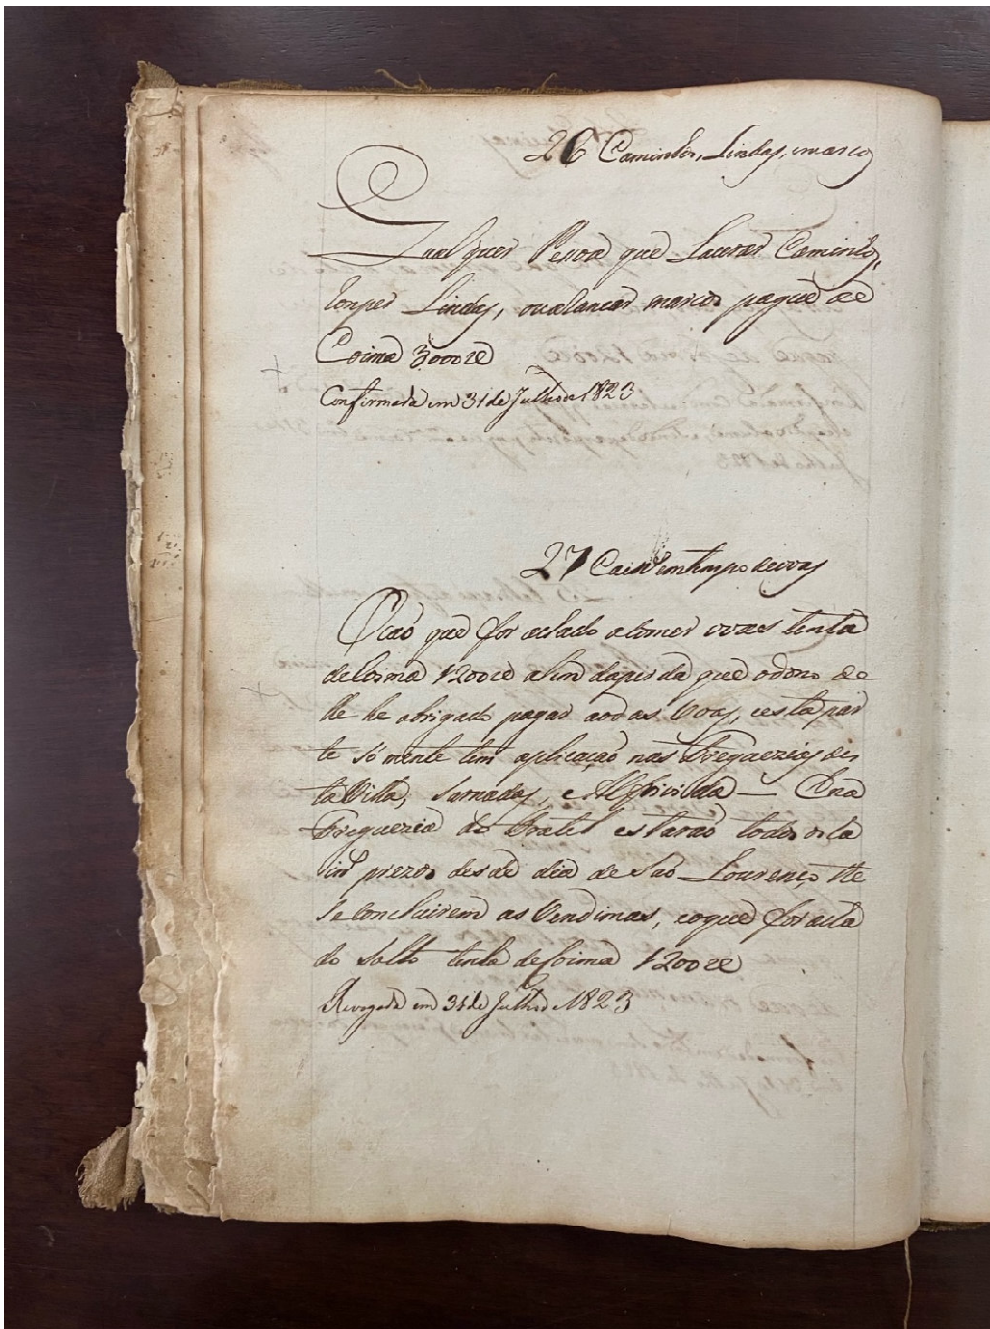 26 Caminhos, Lindas, marcos
Qualquer Pesoa que Laurar Caminhos,
romper Lindas, ou alancar marcos pague de
Coima 3000 re
Confirmada em 31 de Julho de 1823
27 Caens em tempo de uvas
O Cão que for achado a comer uvas tenha
de Coima 1200 re alem da perda que o dono de
lle he obrigado pagar ao das Uvas, e esta par
te sómente tem aplicação nas Freguezias des
ta Villa, Sarnadas, e Alfrivida — E na
Freguezia do Pratel estarão todos os Ca
ins prezos desde dia de São Lourenço, the
se concluirem as Vendimas, e o que for acha
do solto tenha de Coima 1200 re
Revogada em 31 de Julho de 1823